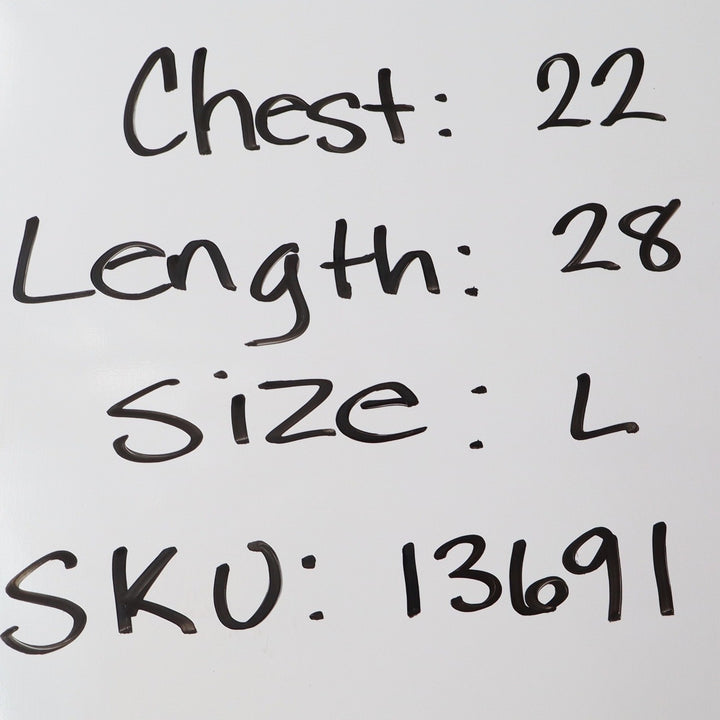 Chest: 22
Length: 28
Size: L
SKU: 13691